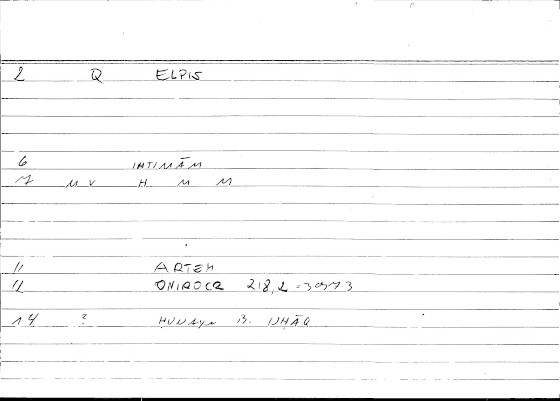 2 Q ELPIS
6 IHTIMĀM
7 M V H M M
11 ARTEM
11 ONIROCR 218,2 = 397.3
14 ? HUNAYN B. ISHĀQ